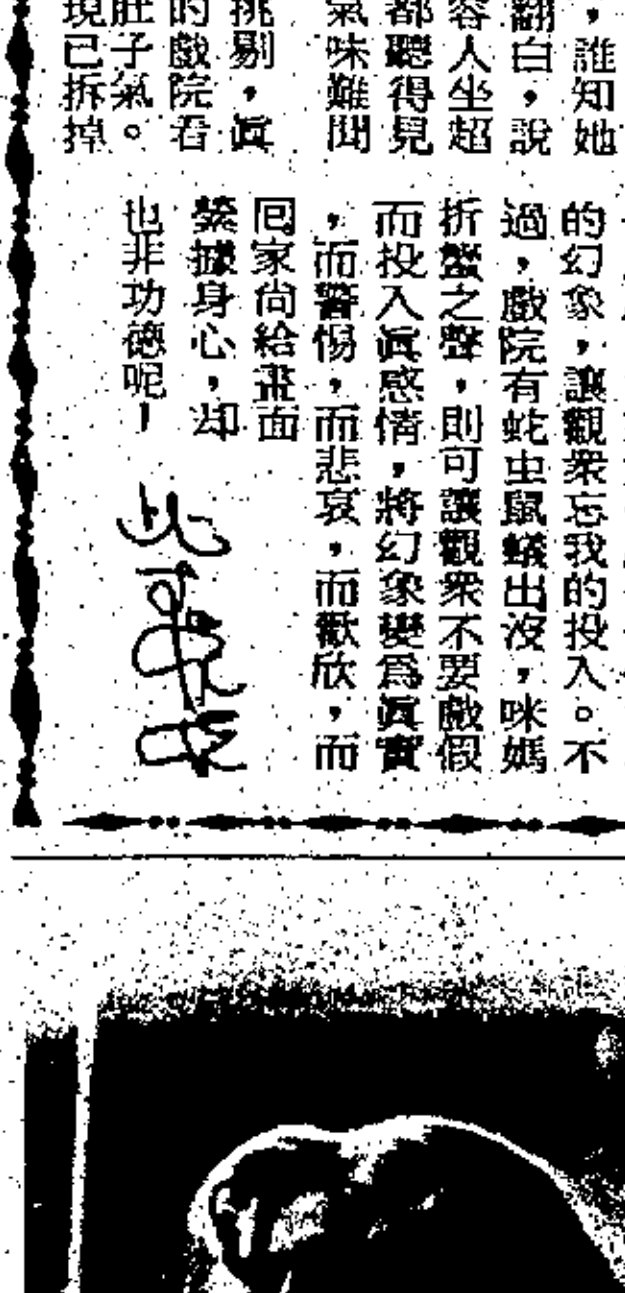 ，誰知她
翻白，說
容人坐超
都聽得見
氣味難聞
挑剔，眞
的戲院看
肚子氣。
現已拆掉
的幻象，讓觀衆忘我的投入。不
過，戲院有蛇虫鼠蟻出沒，咪媽
折蟹之聲，則可讓觀衆不要戲假
而投入眞感情，將幻象變爲眞實
，而警惕，而悲哀，而歡欣，而
囘家尚給畫面
縈據身心，却
也非功德呢！